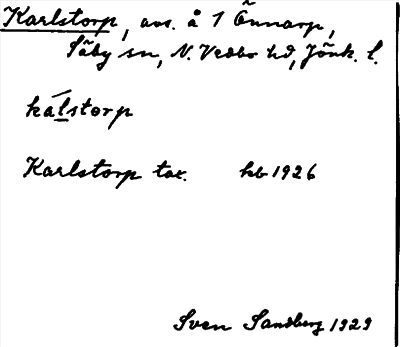 Karlstorp, avs. å 1 Önnarp,
Säby sn, N. Vedbo hd, Jönk. l.
kálstorp
Karlstorp tax. hb 1926
Sven Sandberg 1929